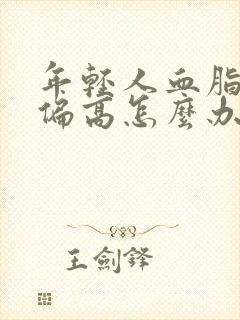 年輕人血脂
偏高怎麼办
王劍鋒